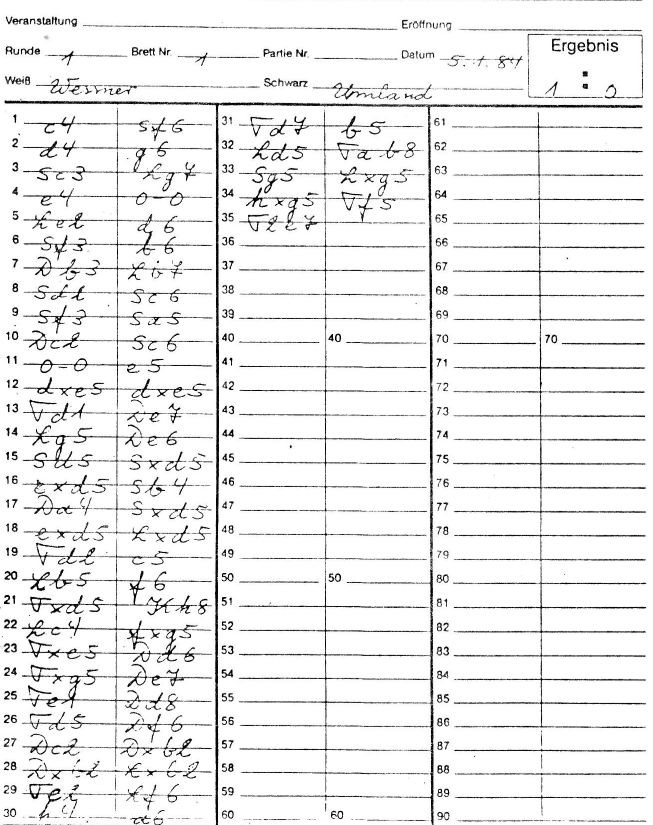 Veranstaltung Eröffnung
Runde 1 Brett Nr. 1 Partie Nr. Datum 5.1.84 Ergebnis
Weiß Wessner Schwarz Umland 1 : 0
1 c4 Sf6 31 Td7 b5 61
2 d4 g6 32 Ld5 Tab8 62
3 Sc3 Lg7 33 Sg5 Lxg5 63
4 e4 0-0 34 hxg5 Tf5 64
5 Le2 d6 35 T2e7 65
6 Sf3 b6 36 66
7 Db3 Lb7 37 67
8 Sd2 Sc6 38 68
9 Sf3 Sa5 39 69
10 Dc2 Sc6 40 40 70 70
11 0-0 e5 41 71
12 dxe5 dxe5 42 72
13 Td1 De7 43 73
14 Lg5 De6 44 74
15 Sd5 Sxd5 45 75
16 cxd5 Sb4 46 76
17 Da4 Sxd5 47 77
18 exd5 Lxd5 48 78
19 Td2 c5 49 79
20 Lb5 f6 50 50 80
21 Txd5 Kh8 51 81
22 Lc4 fxg5 52 82
23 Txe5 Dd6 53 83
24 Txg5 De7 54 84
25 Te1 Dd8 55 85
26 Td5 Df6 56 86
27 Dc2 Dxb2 57 87
28 Dxb2 Lxb2 58 88
29 Te2 Lf6 59 89
30 h4 a6 60 60 90